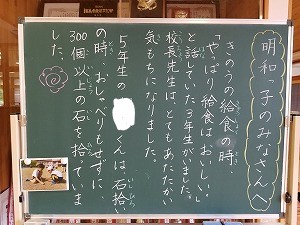 明和っ子のみなさんへ
きのうの給食の時、
「やっぱり給食はおいしい。」
と話していた3年生がいました。
校長先生は、とてもあたたかい
気もちになりました。
5年生の
くんは石拾い
の時、おしゃべりもせずに
300個以上の石を拾っていま
した。